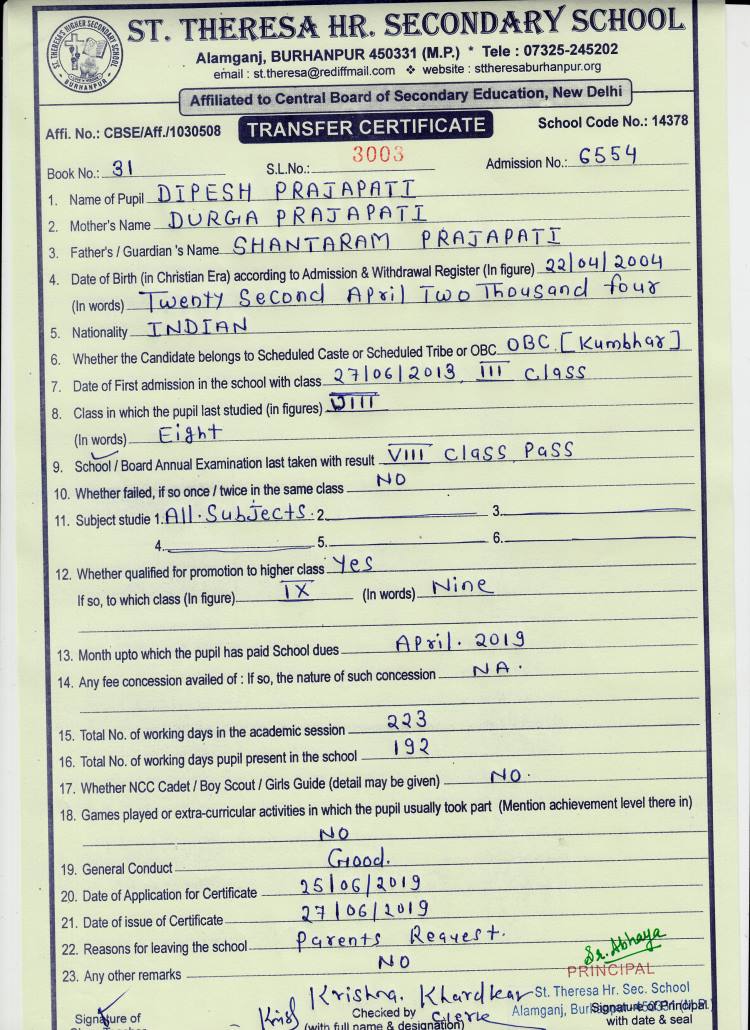 ST. THERESA HR. SECONDARY SCHOOL
Alamganj, BURHANPUR 450331 (M.P.) * Tele : 07325-245202
email : st.theresa@rediffmail.com ❖ website : sttheresaburhanpur.org
Affiliated to Central Board of Secondary Education, New Delhi
Affi. No.: CBSE/Aff./1030508 TRANSFER CERTIFICATE School Code No.: 14378
Book No.: 31 S.L.No.: 3003 Admission No.: 6554
1. Name of Pupil DIPESH PRAJAPATI
2. Mother's Name DURGA PRAJAPATI
3. Father's / Guardian 's Name SHANTARAM PRAJAPATI
4. Date of Birth (in Christian Era) according to Admission & Withdrawal Register (In figure) 22/04/2004
(In words) Twenty Second April Two Thousand four
5. Nationality INDIAN
6. Whether the Candidate belongs to Scheduled Caste or Scheduled Tribe or OBC OBC [Kumbhar]
7. Date of First admission in the school with class 27/06/2013, III Class
8. Class in which the pupil last studied (in figures) VIII
(In words) Eight
9. School / Board Annual Examination last taken with result VIII Class Pass
10. Whether failed, if so once / twice in the same class NO
11. Subject studie 1. All. Subjects. 2. 3.
4. 5. 6.
12. Whether qualified for promotion to higher class Yes
If so, to which class (In figure) IX (In words) Nine
13. Month upto which the pupil has paid School dues April. 2019
14. Any fee concession availed of : If so, the nature of such concession NA.
15. Total No. of working days in the academic session 223
16. Total No. of working days pupil present in the school 192
17. Whether NCC Cadet / Boy Scout / Girls Guide (detail may be given) NO.
18. Games played or extra-curricular activities in which the pupil usually took part (Mention achievement level there in)
NO
19. General Conduct Good.
20. Date of Application for Certificate 25/06/2019
21. Date of issue of Certificate 27/06/2019
22. Reasons for leaving the school Parents Request.
23. Any other remarks NO
Sr. Abhaya
PRINCIPAL
Krishna. Khardkar St. Theresa Hr. Sec. School
Signature of Checked by Clerk Alamganj, Signature of Principal
(with full name & designation) with date & seal